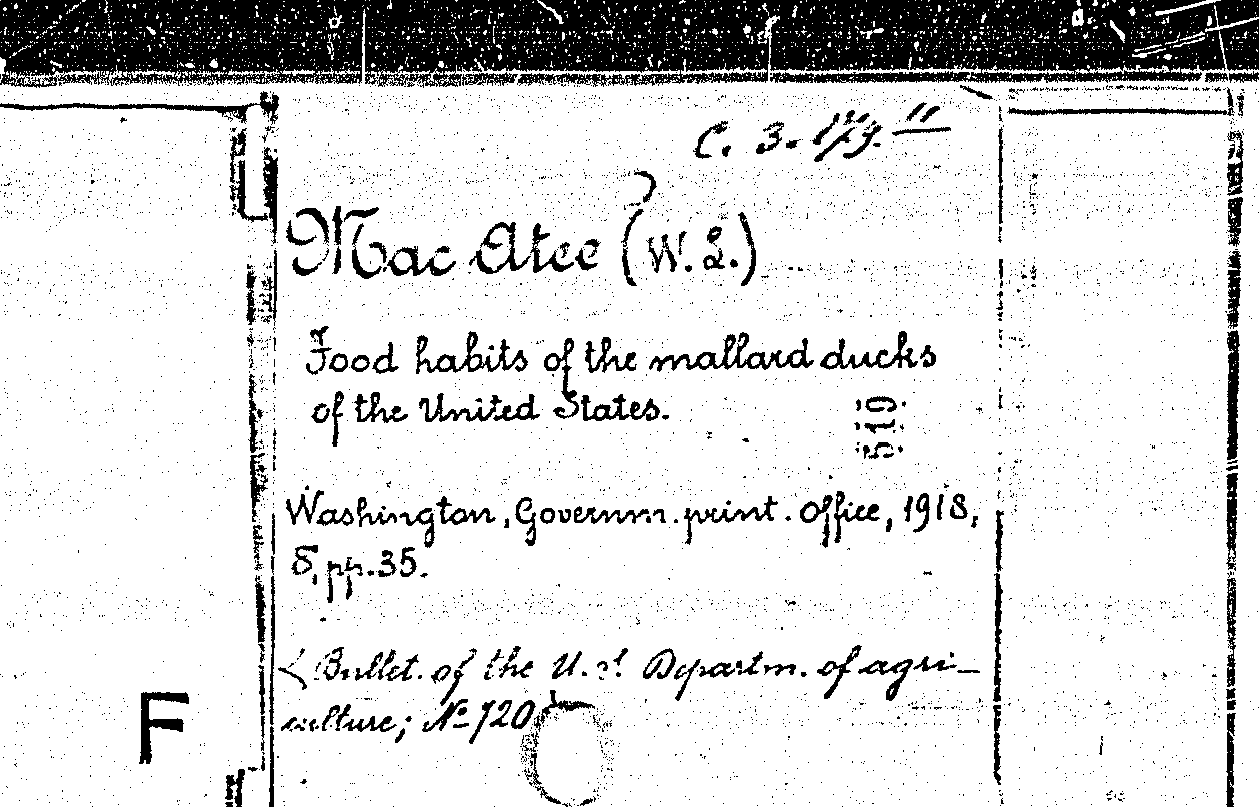 C. 3. 179. "
Mac Atee (W. L.)
Food habits of the mallard ducks
of the United States.
519
Washington, Governm. print. office, 1918,
8, pp. 35.
< Bullet. of the U. St. Departm. of agri-
culture; No 720
F